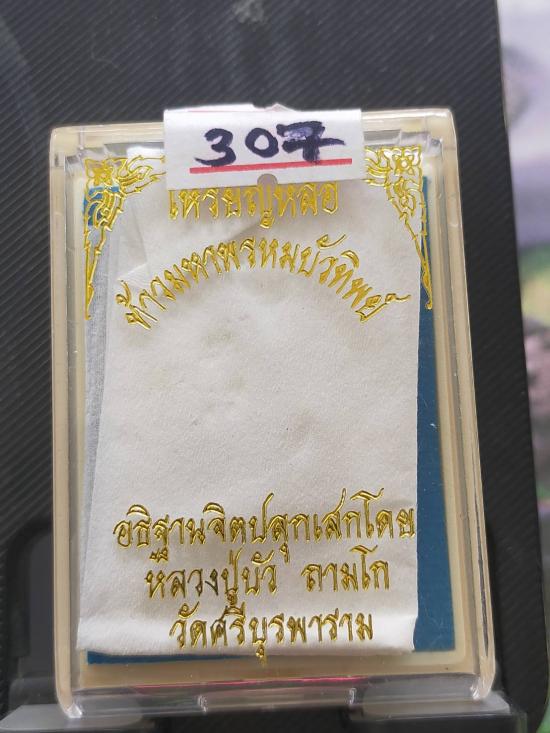 307
เหรียญหล่อ
ท้าวมหาพรหมบัวทิพย์
อธิฐานจิตปลุกเสกโดย
หลวงปู่บัว ถามโก
วัดศรีบุรพาราม